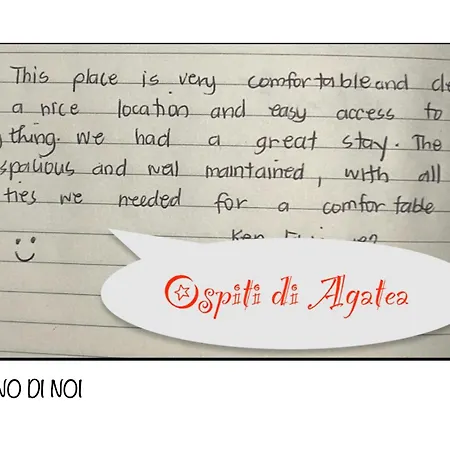 This place is very comfortable and
a nice location and easy access to
thing. we had a great stay. The
spacious and well maintained, with all
ties we needed for a comfortable
Ken
Ospiti di Agatea
NO DI NOI